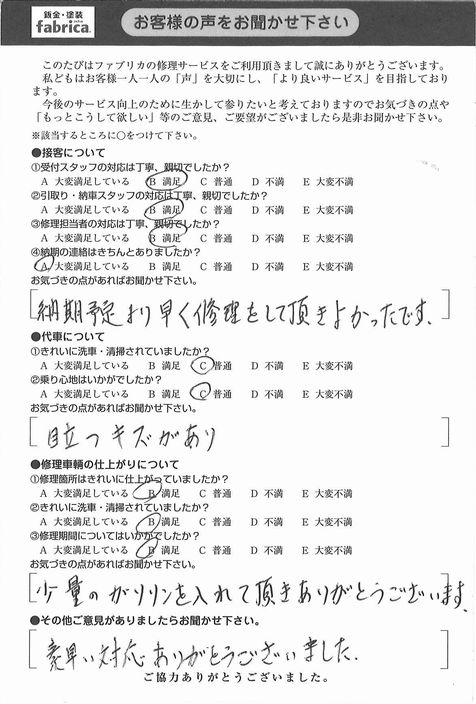 鈑金・塗装
fabrica.
お客様の声をお聞かせ下さい
このたびはファブリカの修理サービスをご利用頂きまして誠にありがとうございます。
私どもはお客様一人一人の「声」を大切にし、「より良いサービス」を目指しており
ます。
今後のサービス向上のために生かして参りたいと考えておりますのでお気づきの点や
「もっとこうして欲しい」等のご意見、ご要望がございましたら是非お聞かせ下さい。
※該当するところに○をつけて下さい。
●接客について
①受付スタッフの対応は丁寧、親切でしたか？
A 大変満足している B 満足 C 普通 D 不満 E 大変不満
②引取り・納車スタッフの対応は丁寧、親切でしたか？
A 大変満足している B 満足 C 普通 D 不満 E 大変不満
③修理担当者の対応は丁寧、親切でしたか？
A 大変満足している B 満足 C 普通 D 不満 E 大変不満
④納期の連絡はきちんとありましたか？
A 大変満足している B 満足 C 普通 D 不満 E 大変不満
お気づきの点があればお聞かせ下さい。
納期予定より早く修理をして頂きよかったです。
●代車について
①きれいに洗車・清掃されていましたか？
A 大変満足している B 満足 C 普通 D 不満 E 大変不満
②乗り心地はいかがでしたか？
A 大変満足している B 満足 C 普通 D 不満 E 大変不満
お気づきの点があればお聞かせ下さい。
目立つキズがあり
●修理車輌の仕上がりについて
①修理箇所はきれいに仕上がっていましたか？
A 大変満足している B 満足 C 普通 D 不満 E 大変不満
②きれいに洗車・清掃されていましたか？
A 大変満足している B 満足 C 普通 D 不満 E 大変不満
③修理期間についてはいかがでしたか？
A 大変満足している B 満足 C 普通 D 不満 E 大変不満
お気づきの点があればお聞かせ下さい。
少量のガソリンを入れて頂きありがとうございます。
●その他ご意見がありましたらお聞かせ下さい。
素早い対応ありがとうございました。
ご協力ありがとうございました。